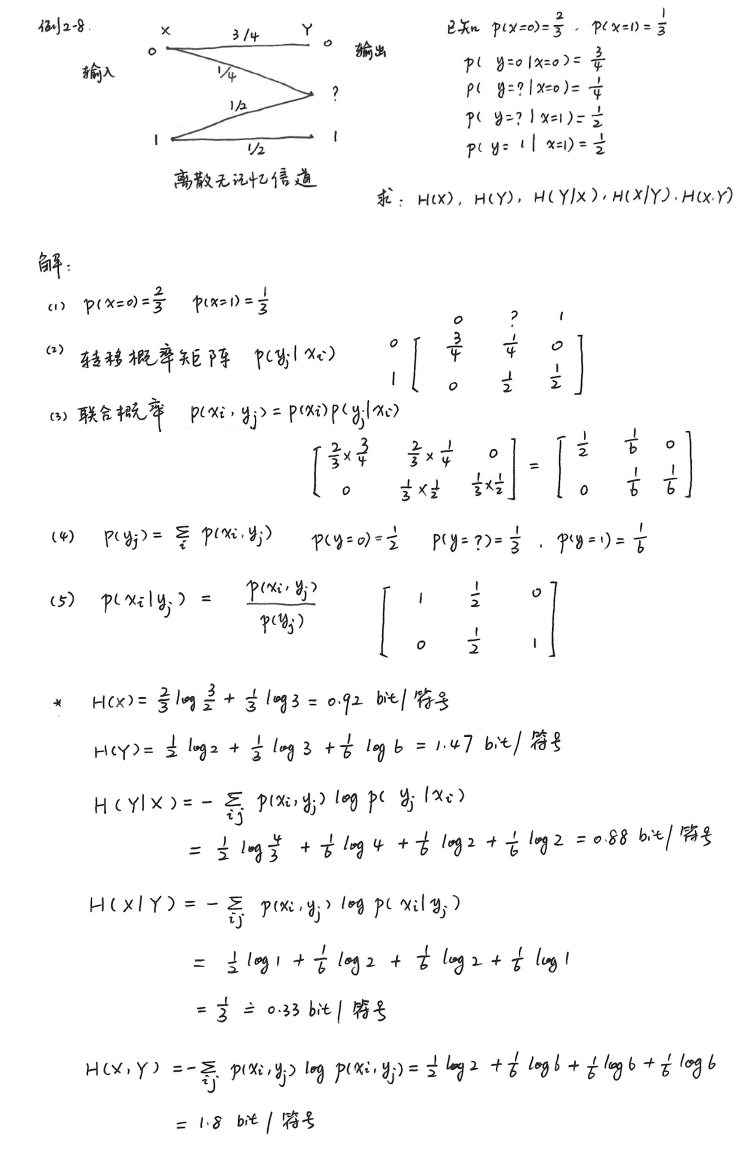 例2-8.
X 3/4 Y
0 0
输入 输出
1/4
?
1/2
1 1
1/2
离散无记忆信道
已知 p(x=0)=2/3 , p(x=1)=1/3
p( y=0|x=0)=3/4
p( y=?|x=0)=1/4
p( y=?|x=1)=1/2
p( y=1| x=1)=1/2
求: H(X), H(Y), H(Y|X), H(X|Y), H(X.Y)
解:
(1) p(x=0)=2/3 p(x=1)=1/3
(2) 转移概率矩阵 p(yj|xi)
0 ? 1
0 [ 3/4 1/4 0
1 0 1/2 1/2 ]
(3) 联合概率 p(xi,yj)=p(xi)p(yj|xi)
[ 2/3×3/4 2/3×1/4 0
0 1/3×1/2 1/3×1/2 ] = [ 1/2 1/6 0
0 1/6 1/6 ]
(4) p(yj)=∑i p(xi,yj) p(y=0)=1/2 p(y=?)=1/3 , p(y=1)=1/6
(5) p(xi|yj) = p(xi,yj)/p(yj) [ 1 1/2 0
0 1/2 1 ]
* H(X)=2/3 log 3/2 + 1/3 log3 = 0.92 bit/符号
H(Y)=1/2 log2 + 1/3 log 3 + 1/6 log 6 = 1.47 bit/符号
H(Y|X)=-∑ij p(xi,yj) log p( yj|xi)
= 1/2 log 4/3 + 1/6 log 4 + 1/6 log 2 + 1/6 log 2 = 0.88 bit/符号
H(X|Y) = -∑ij p(xi,yj) log p( xi|yj)
= 1/2 log1 + 1/6 log 2 + 1/6 log 2 + 1/6 log 1
= 1/3 ≐ 0.33 bit/符号
H(X,Y) =-∑ij p(xi,yj) log p(xi,yj)=1/2 log 2 + 1/6 log6 + 1/6 log6 + 1/6 log 6
= 1.8 bit/符号